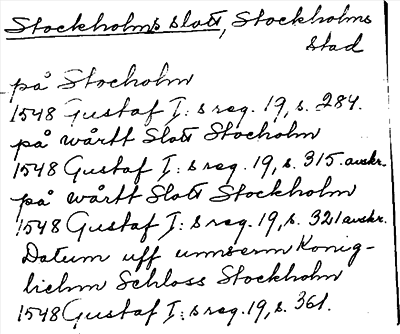 Stockholms slott, Stockholms
stad
på Stocholm
1548 Gustaf I:s reg. 19, s. 284.
på wårtt Slott Stocholm
1548 Gustaf I:s reg. 19, s. 315. avskr.
på wårtt Slott Stockholm
1548 Gustaf I:s reg. 19, s. 321 avskr.
Datum uff unnserm König-
lichn Schloss Stockholm
1548 Gustaf I:s reg. 19, s. 361.